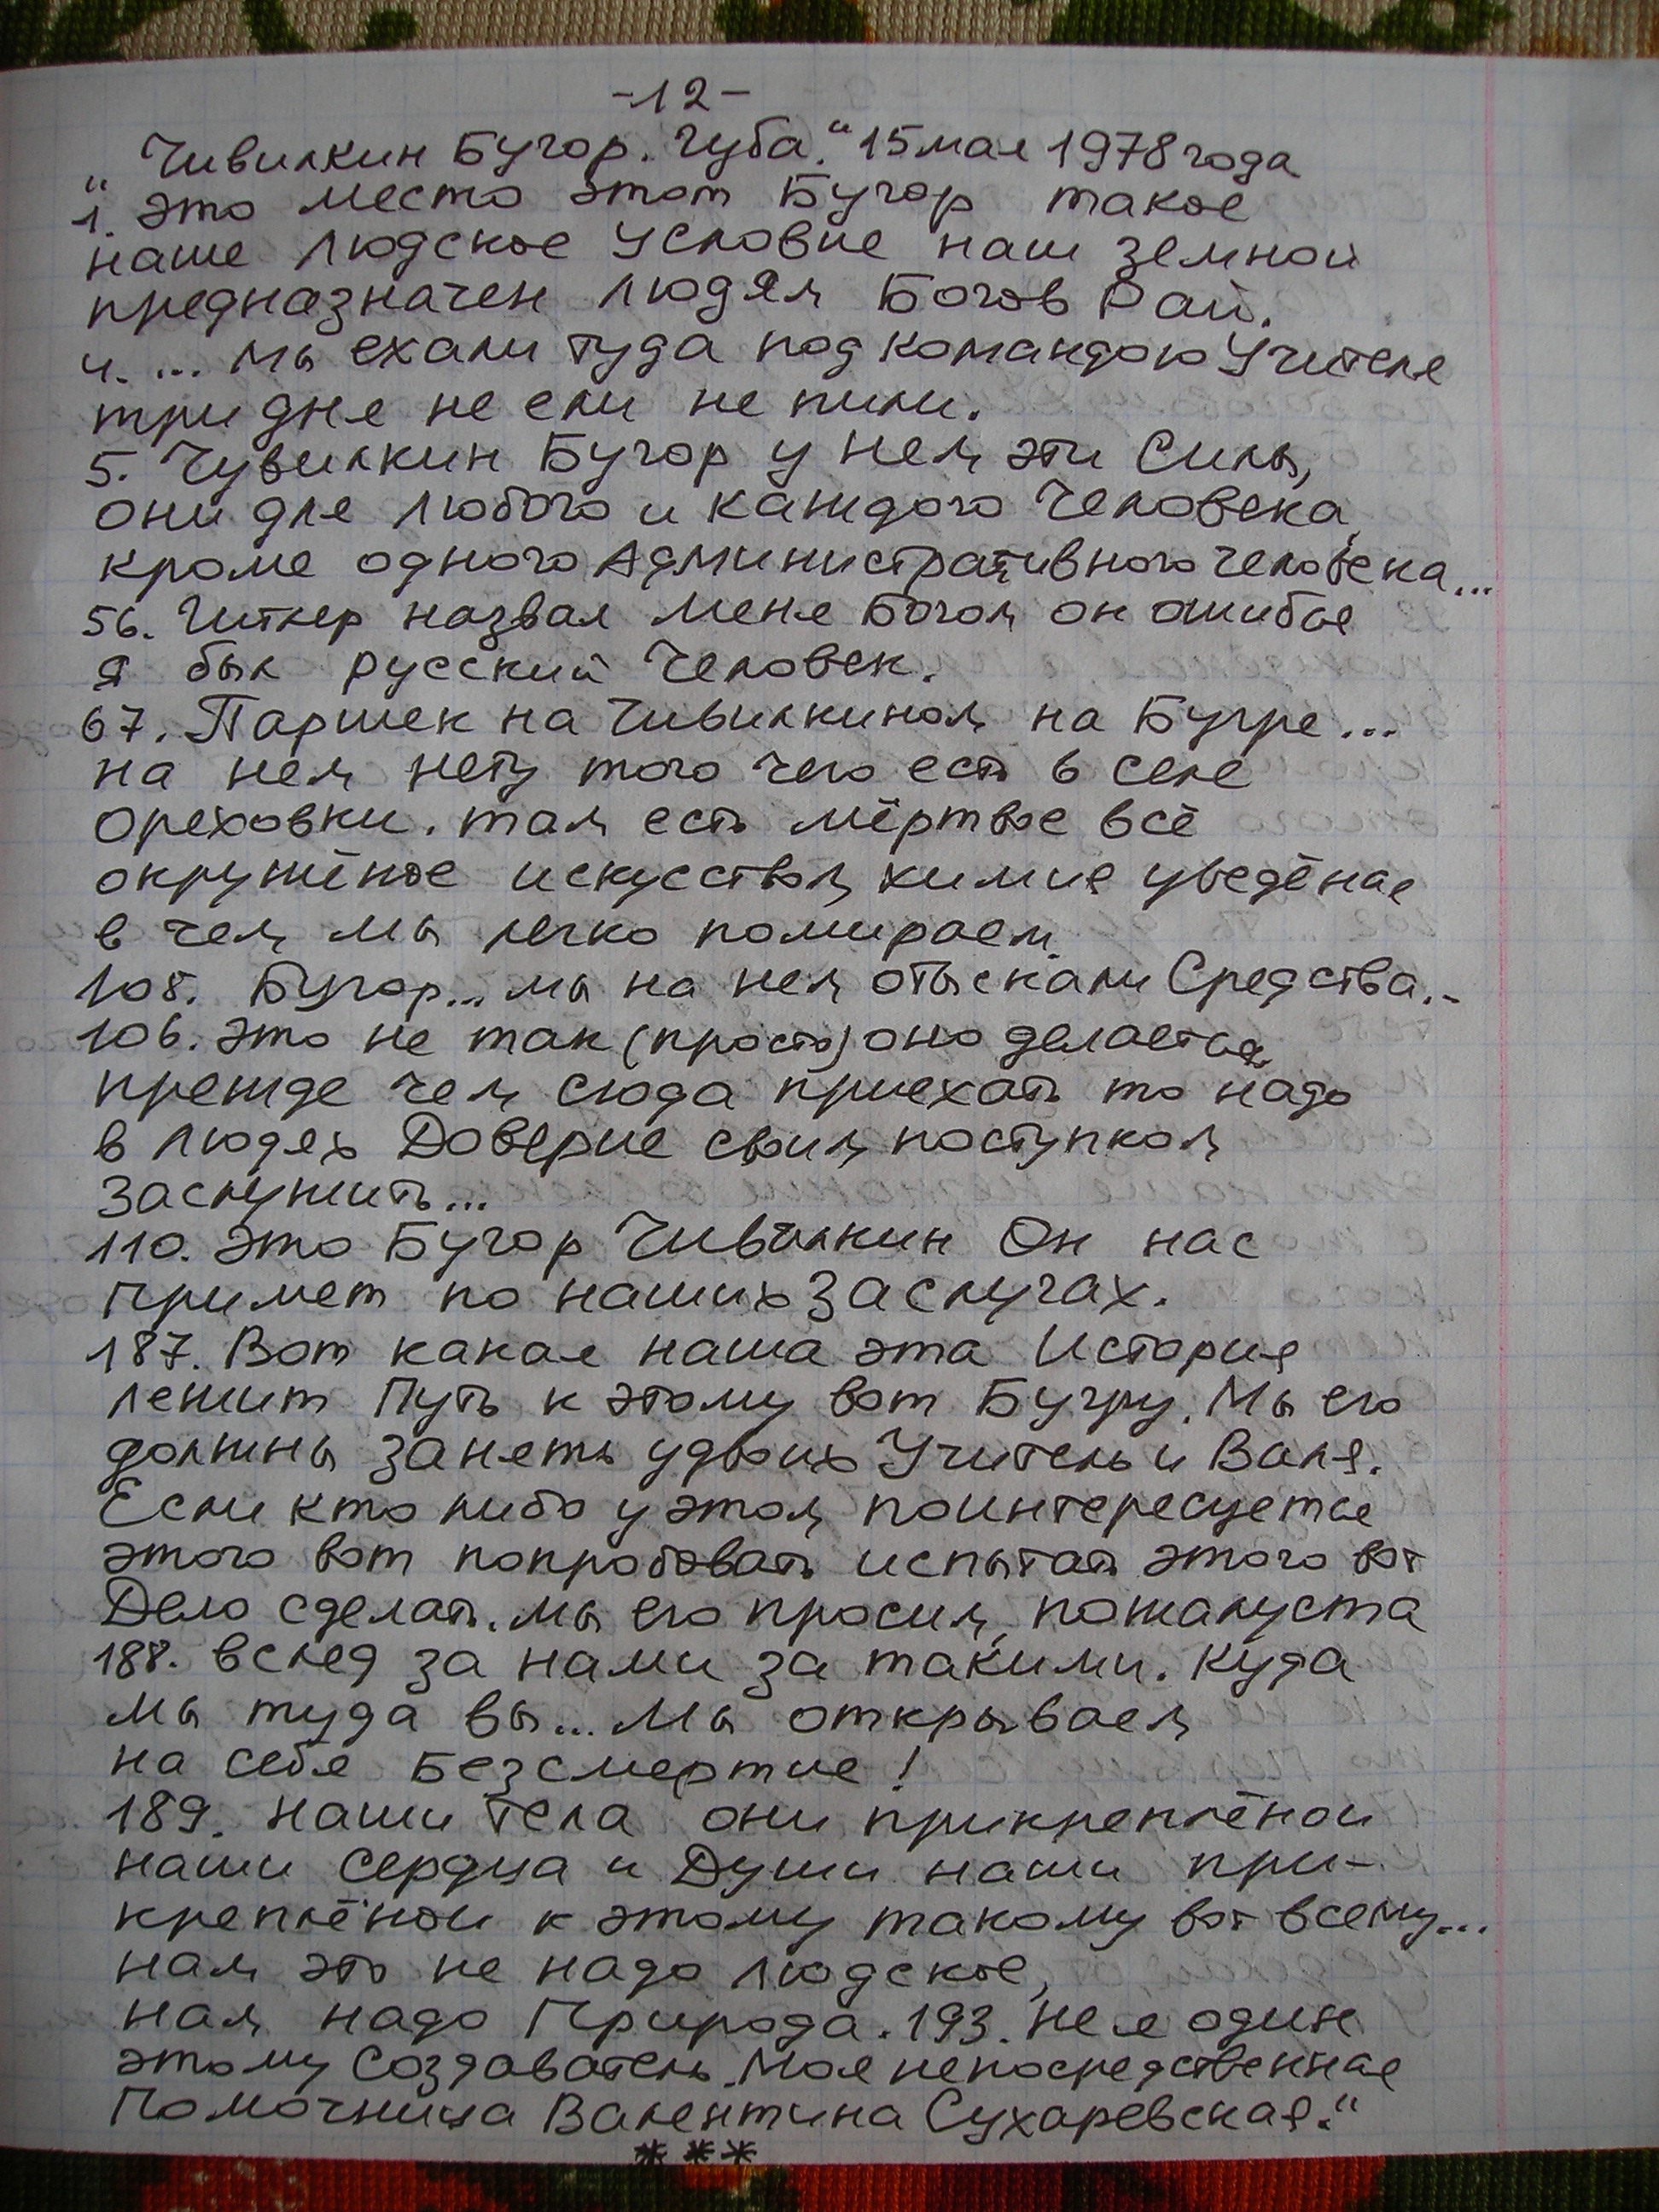 -12-
Чивилкин Бугор. Чуба." 15 мая 1978 года
"1. Это место этот Бугор такое
наше людское условие наш земной
предназначен людям Богов Рай.
4. ... мы ехали туда под командою Учителя
три дня не ели не пили.
5. Чувилкин Бугор у нем эти Силы,
они для любого и каждого Человека,
кроме одного Административного человека...
56. Гитлер назвал меня Богом он ошибся
я был русский Человек.
67. Паршек на Чивилкином на Бугре...
на нем нету того чего есть в селе
Ореховки. там есть мёртвое всё
окружёное искусством, химия уведёная
в чем мы легко помираем.
105. Бугор... мы на нем отыскали Средства..
106. Это не так (просто) оно делается
прежде чем сюда приехать то надо
в людях Доверие своим поступком
заслужить...
110. Это Бугор Чивилкин Он нас
примет по наших заслугах.
187. Вот какая наша эта История
лежит Путь к этому вот Бугру. Мы его
должны занять удвоих Учитель и Валя.
Если кто либо у этом поинтересуется
этого вот попробовать испытать этого вот
Дело сделать. мы его просим, пожалуста
188. вслед за нами за такими. Куда
мы туда вы... Мы открываем
на себя Безсмертие!
189. Наши тела они прикреплёнои
наши сердца и Души наши при-
креплёнои к этому такому вот всему...
нам это не надо людское,
нам надо Природа. 193. Не я один
этому Создаватель. Моя непосредственная
Помочница Валентина Сухаревская."
***